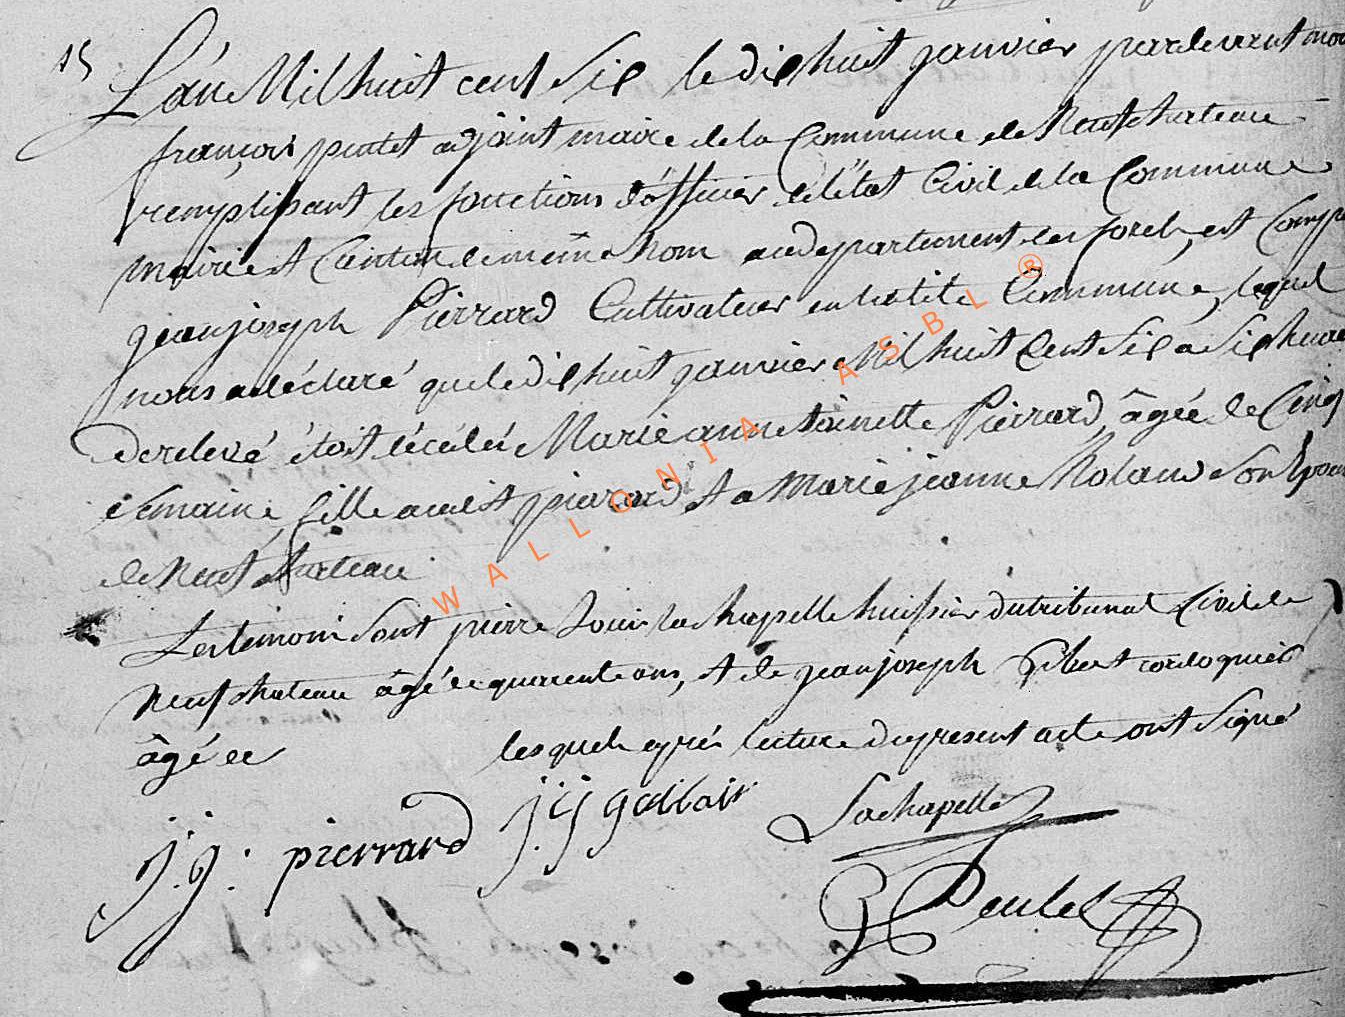 15
L'an Mil huit cent Six le dix huit janvier pardevant nou
françois adjoint maire de la Commune de Neufchateau
remplissant les fonctions d'officier de l'état Civil de la Commune
mairie et Canton de même nom au departement des forets, est Comp
jean joseph Pierrard Cultivateur en la dite Commune, lequel
nous a déclaré que le dix huit janvier Mil huit Cent Six a Six heure
de relevé étoit décédée Marie anne toinette Pierrard, âgée de Cinq
Semaine, fille audit pierard et a Marie jeanne Roland Son Epou
de Neufchateau
Les témoins Sont pierre Louis la Chapelle huissier du tribunal Civil de
Neufchateau âgé de quarente ans, et de jean joseph cordoñnier
âgé de lesquels après lecture du present acte ont Signé
j. j. pierrard j. j gillair Lachapelle
WALLONIA ASBL ®